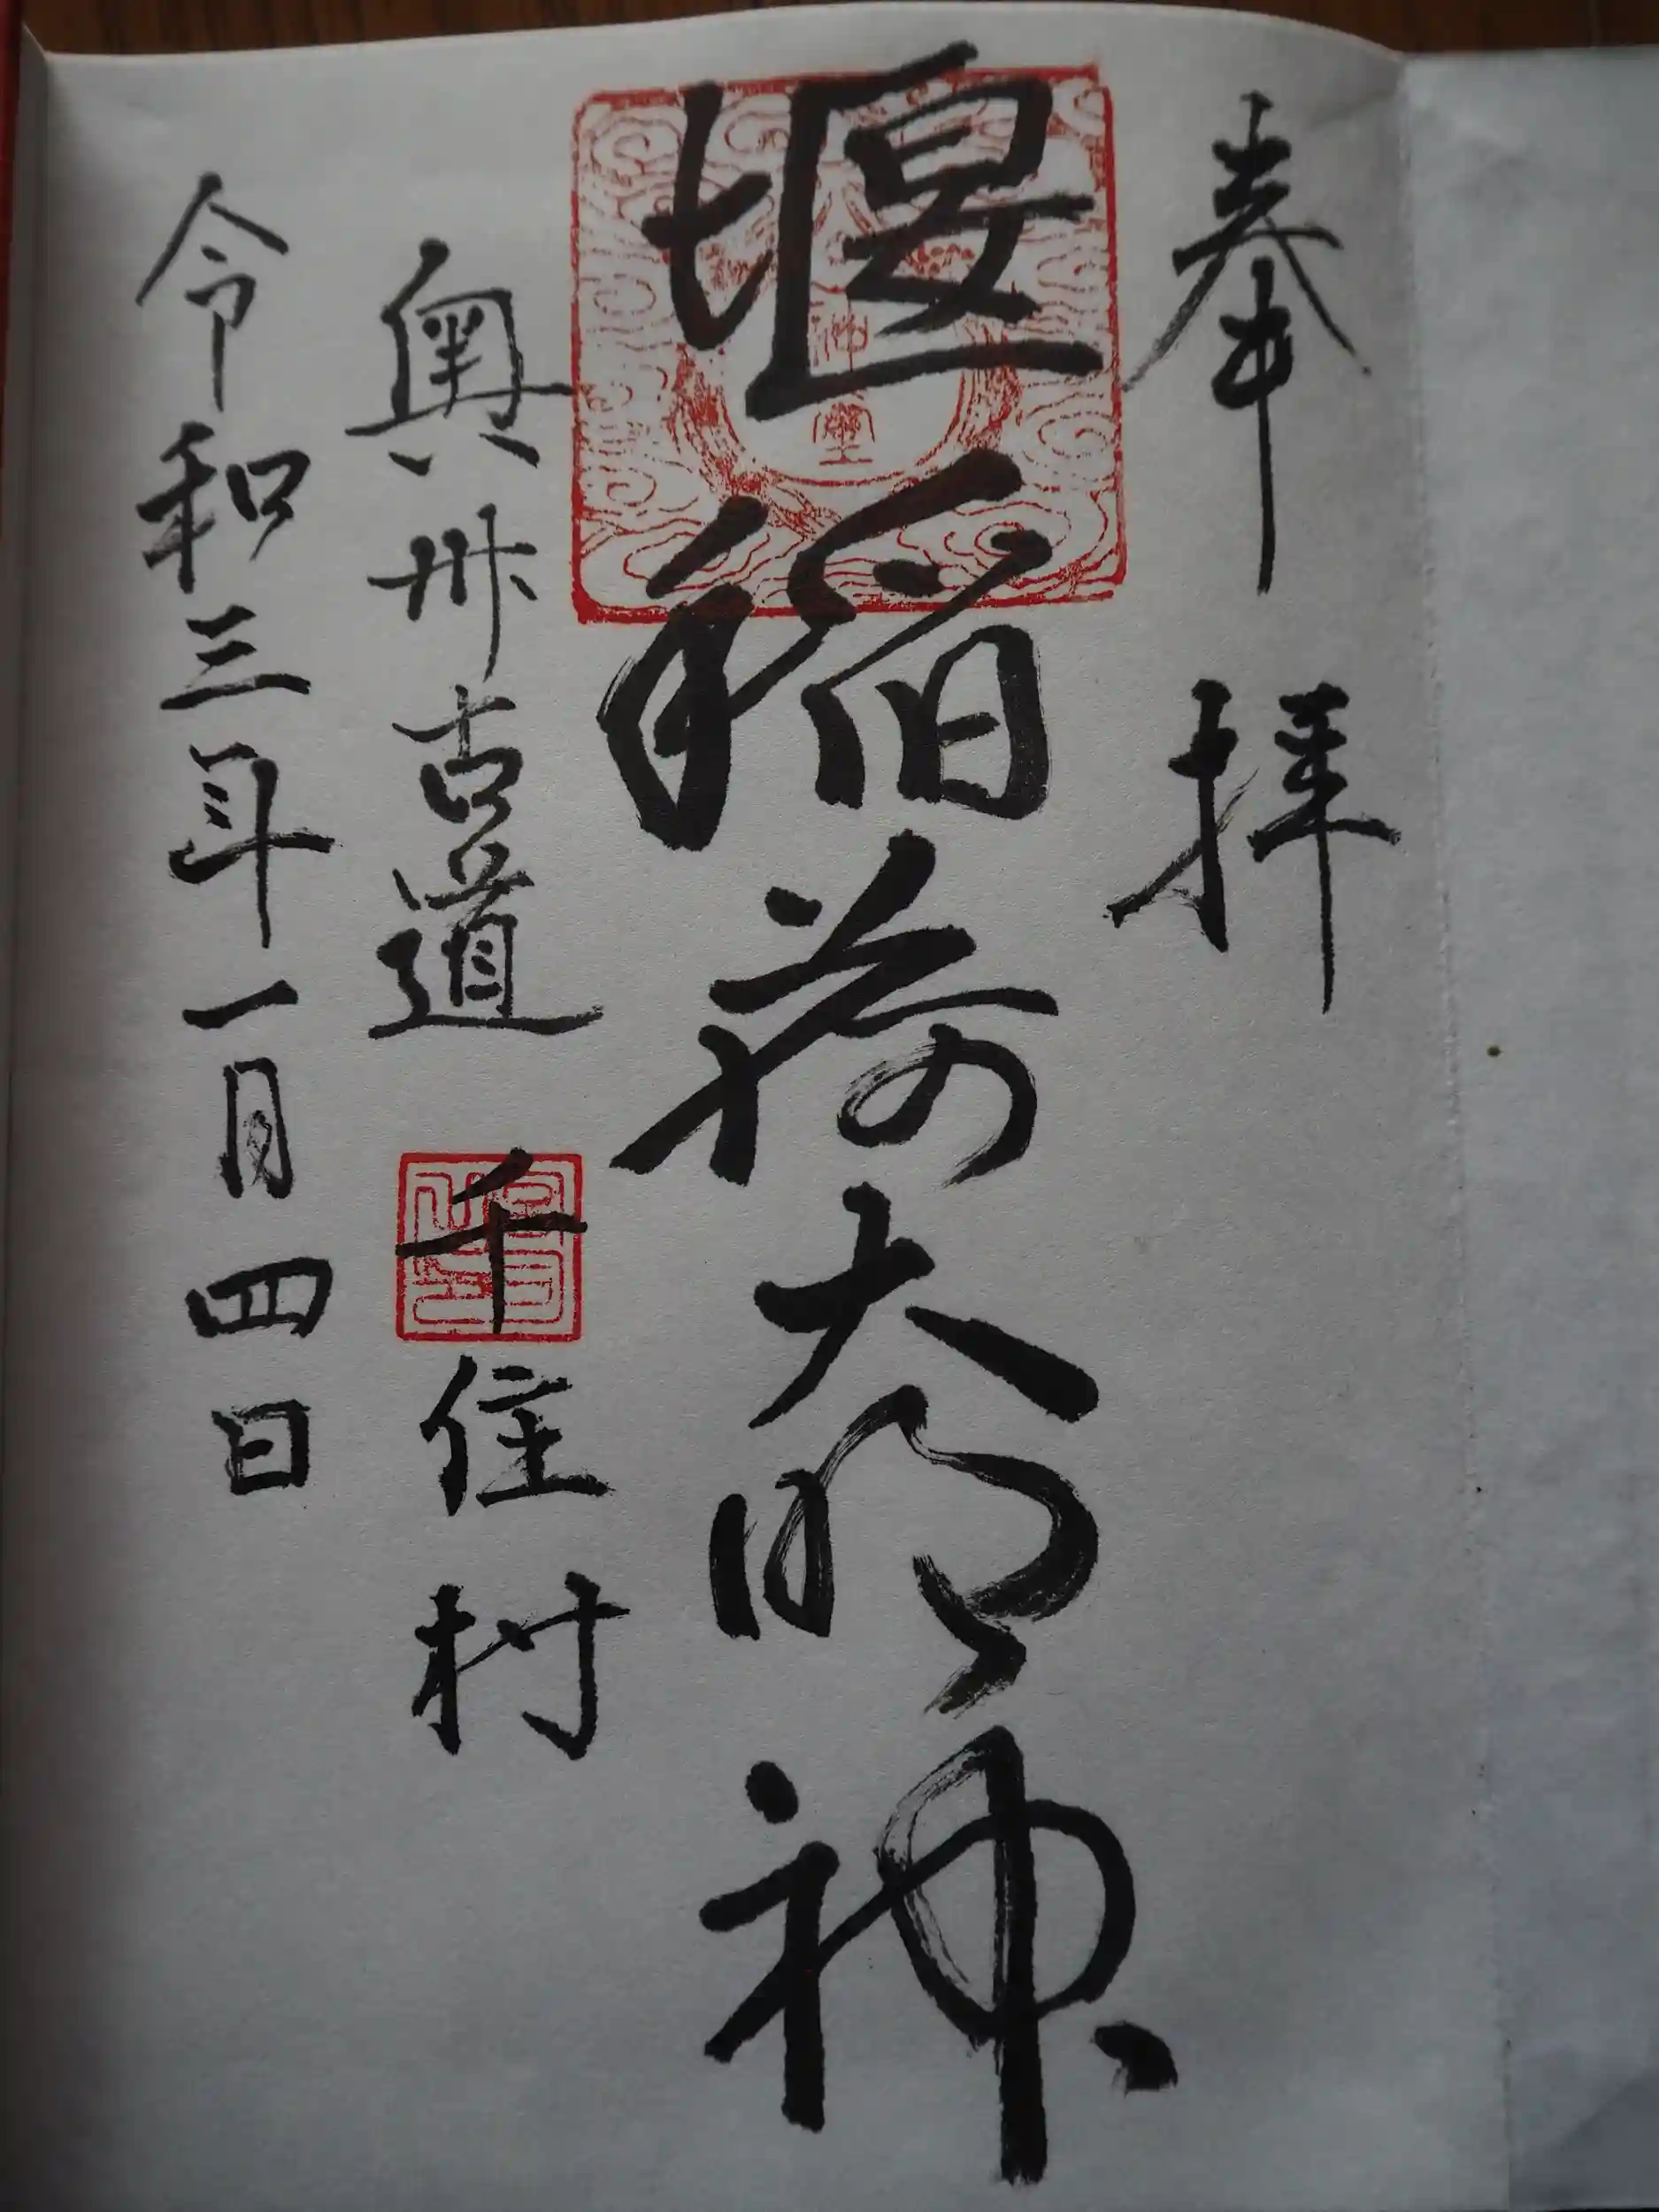 奉拝
堰稲荷大明神
奥州古道 千住村
令和三年一月四日